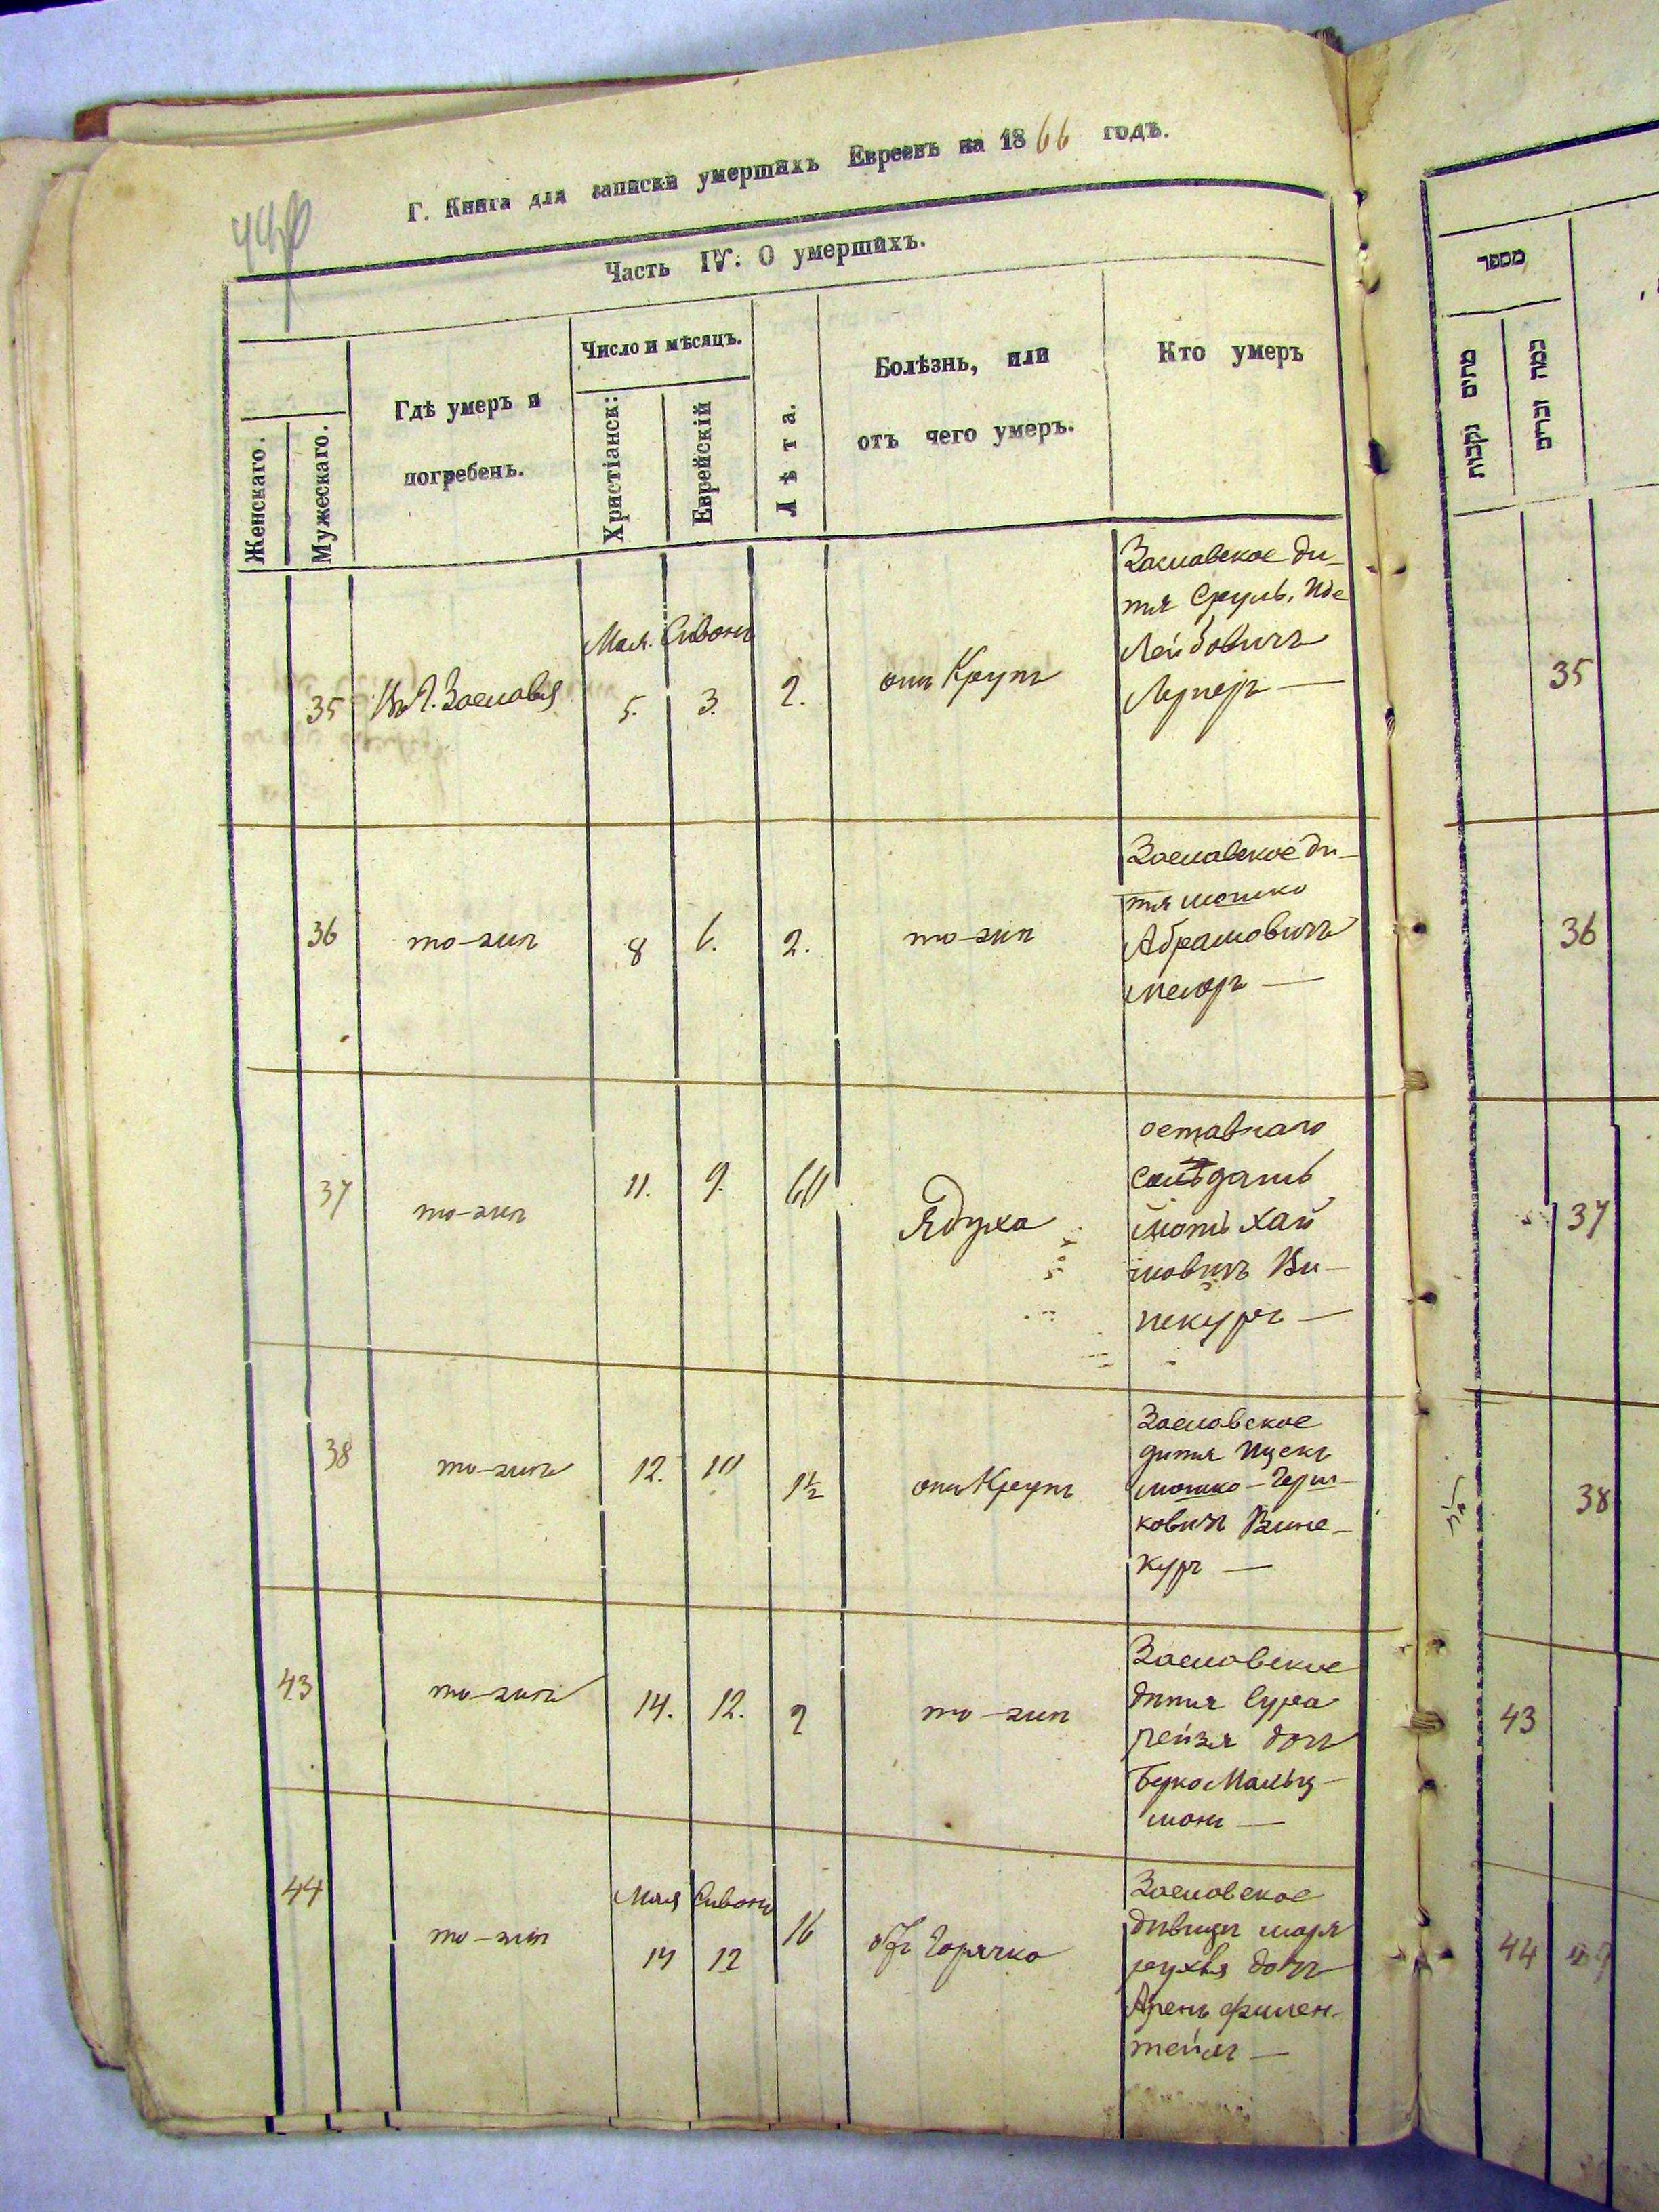 Г. Книга для записки умершихъ Евреевъ на 1866 годъ.
Часть IV. О умершихъ.
Женскаго.
Мужескаго.
Гдѣ умеръ и
погребенъ.
Число и мѣсяцъ.
Христіанск:
Еврейскій
Лѣта.
Болѣзнь, или
отъ чего умеръ.
Кто умеръ
35
Въ Г. Заславѣ
Мая. Сивонъ
5. 3. 2.
отъ Крупъ
Заславское ди-
тя Сруль, Иде
Лейбовичъ
Лернеръ —
36 то-жъ 8 6. 2. то-жъ
Заславское ди-
тя мошко
Абрамовичъ
37 то-жъ 11. 9. 60 Ядуха
солдатъ
мотъ Хай
мовичъ Ви-
некуръ —
38 то-жъ 12. 10 1½ отъ Крупъ
Заславское
дитя Ицекъ
мошко-Герш-
ковичъ Вине-
куръ —
43 то-жъ 14. 12. 2 то-жъ
Заславское
дитя Сура
рейзя дочь
Берко Мальц-
монъ —
44 то-жъ
Мая Сивонъ
14 12 16
отъ Горячка
Заславское
дѣвица
рухля дочь
Аренъ
מספר
מתים נקבות
כמה זכרים
35
36
37
38
43
44